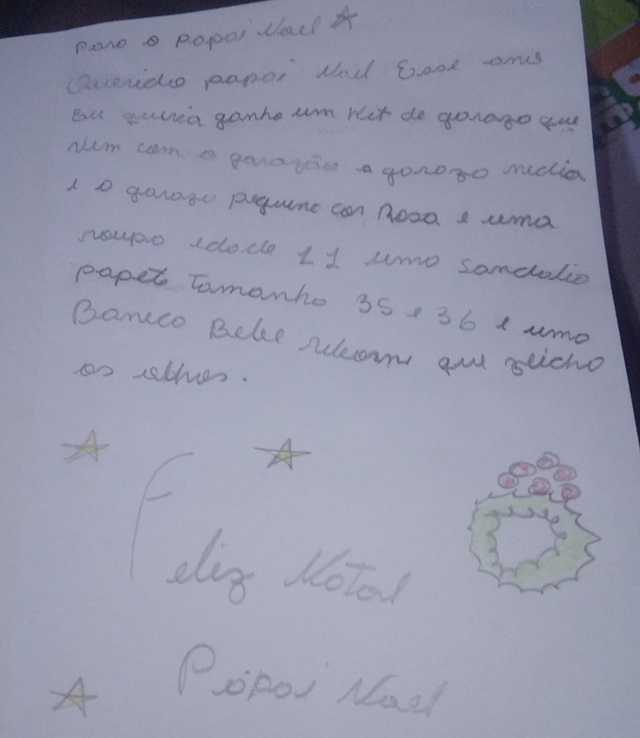 para o papai Noel
Querido papai Noel Esse ano
Eu queria ganha um Kit de garaza que
Vem com a garazão a garaza media
e a garaza pequena cor Rosa e uma
roupa idade 11 uma sandalia
papete Tamanho 35 e 36 e uma
Boneca Bebe reborne que feicha
os olhos.
Feliz Natal
Papai Noel